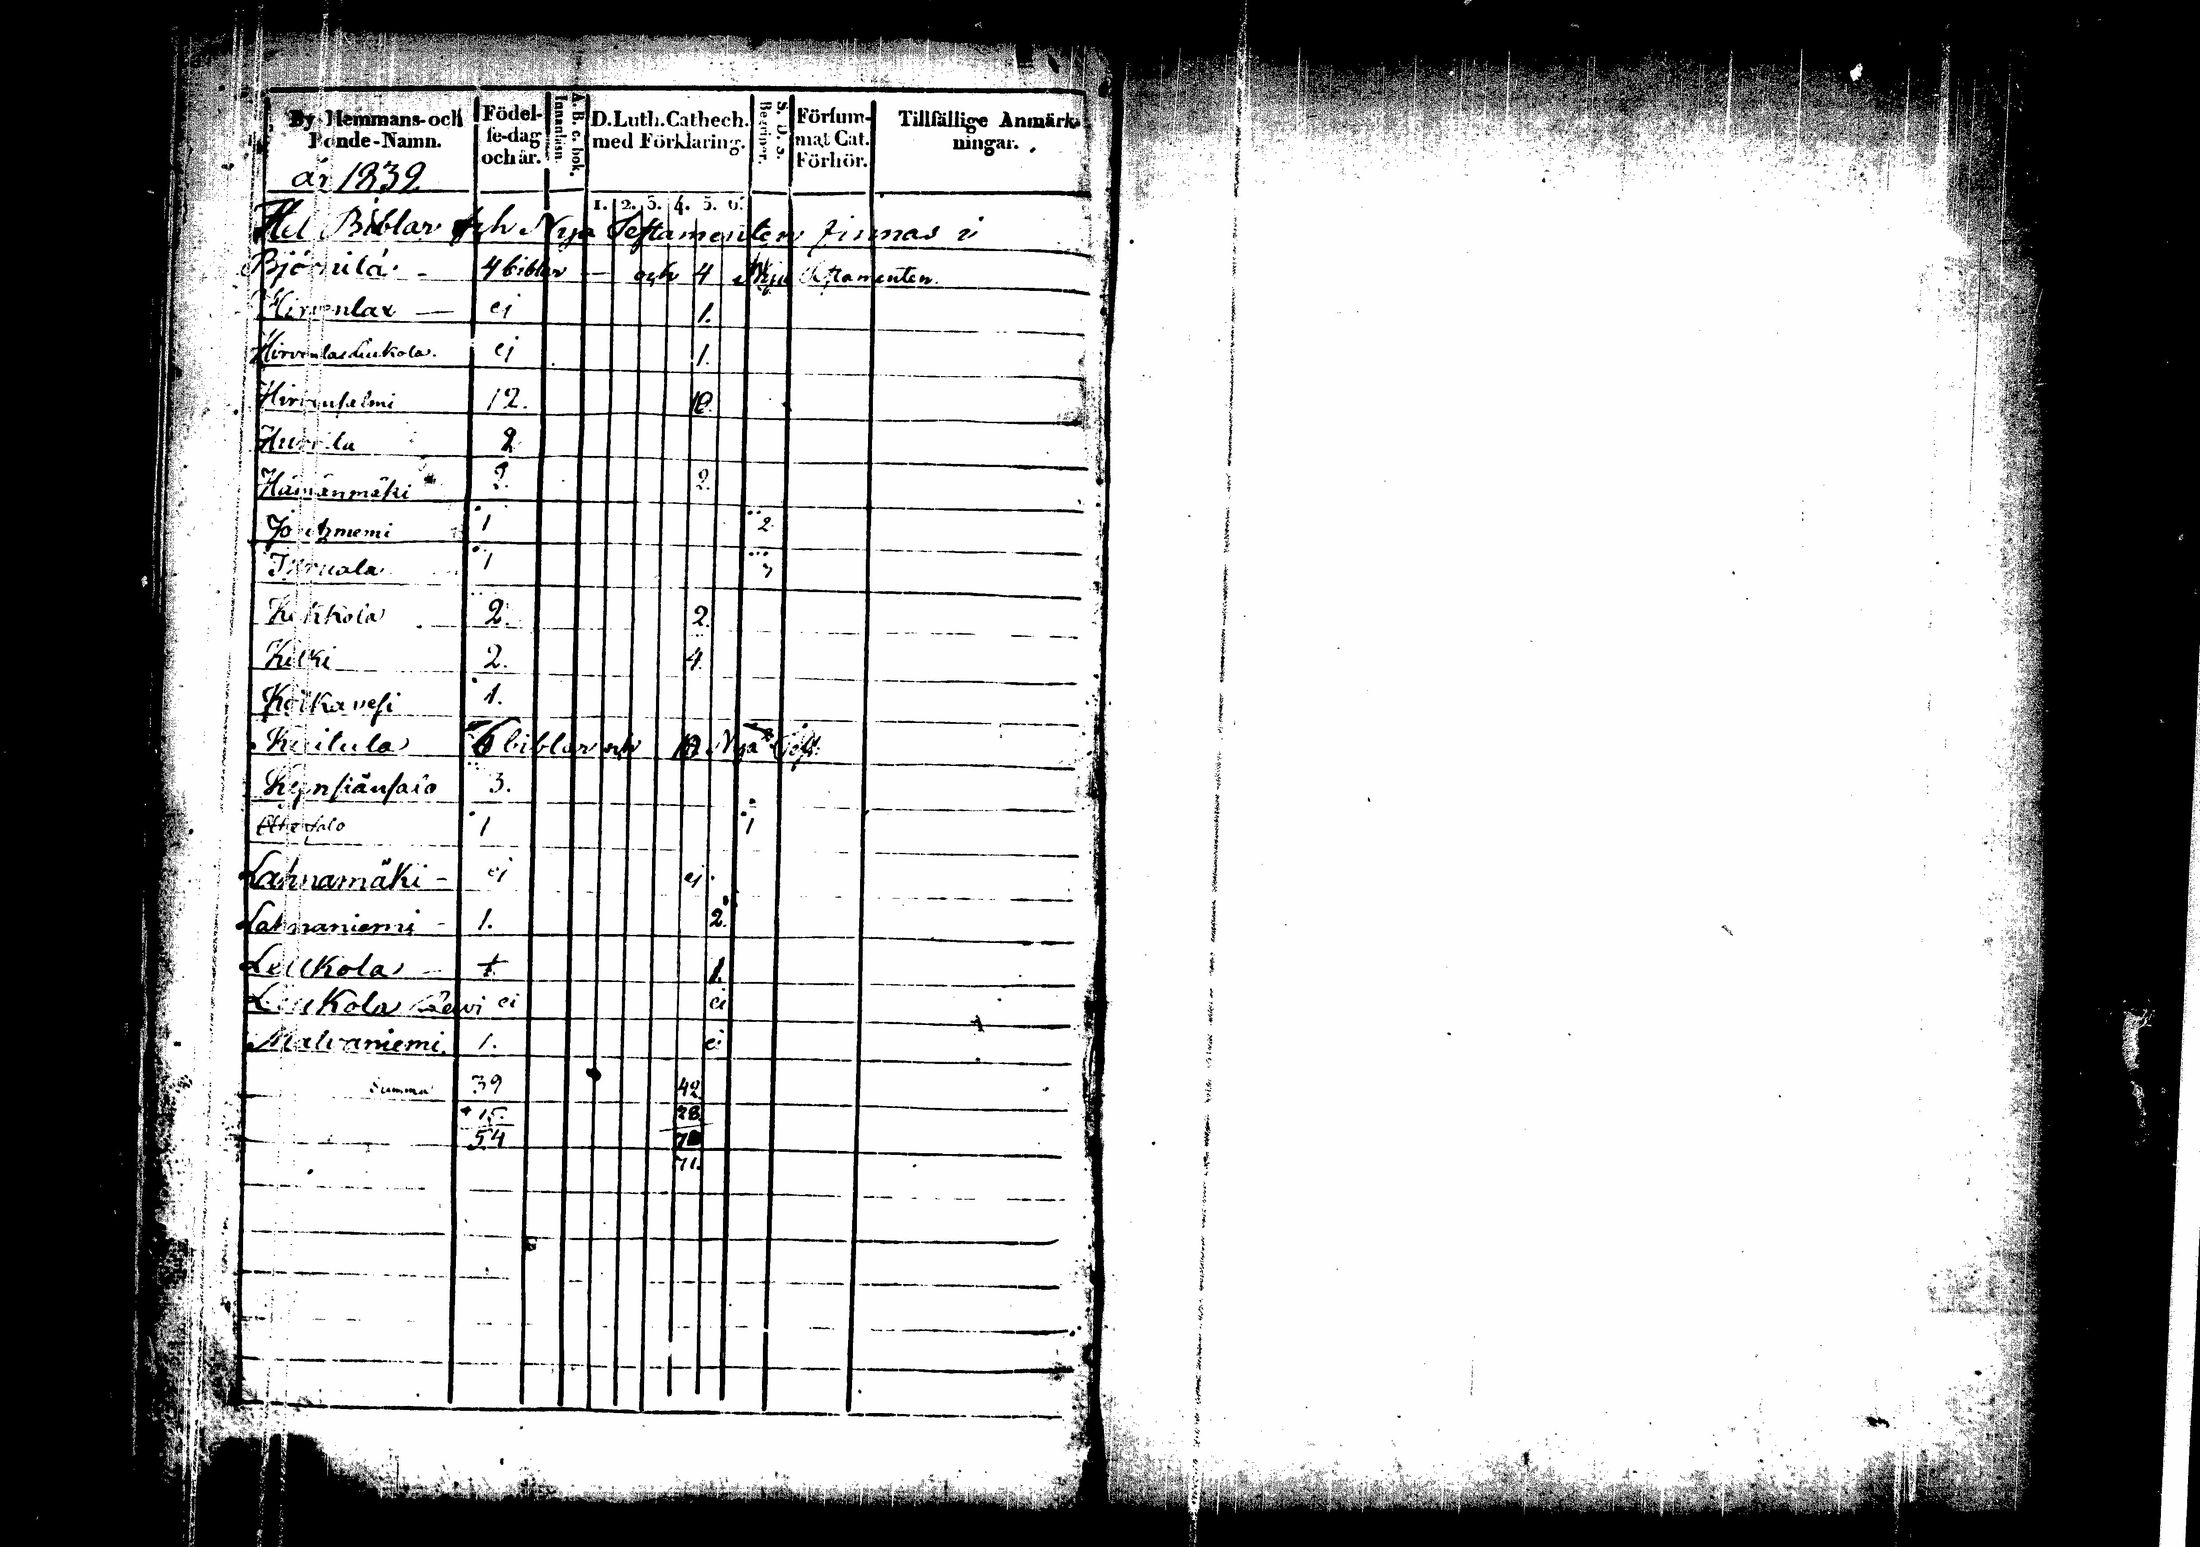 By-Hemmans-och Bonde-Namn.
Födel-se-dag och år.
A. B. c. bok, Innanläsn.
D. Luth. Cathech. med Förklaring.
S. D. S. Begriper.
Försum-mat Cat. Förhör.
Tillfällige Anmärk-ningar.
år 1839
1. 2. 3. 4. 5. 6.
Hel Biblar och Nya Testamenten finnas i
Björnilä - 4 biblar — och 4 Nya Testamenten.
Hirvenlax — ej 1.
Hirvenlax Leukola. ej 1.
Hirvensalmi 12. 10.
Hurila 2
Hämänmäki 2. 2.
1 2.
1
Kekkola 2. 2.
Kilki 2. 4.
Koikavesi 1.
Kuitula 6 biblar och Nya Test.
Kynsiänsalo 3.
1 1
Lahnamäki - ej ej.
Lahnaniemi - 1. 2.
Leukola - 1.
Leukola Lewi ei ei
Malvaniemi. 1. ei
Summa 39 42
15. 28
54
71.